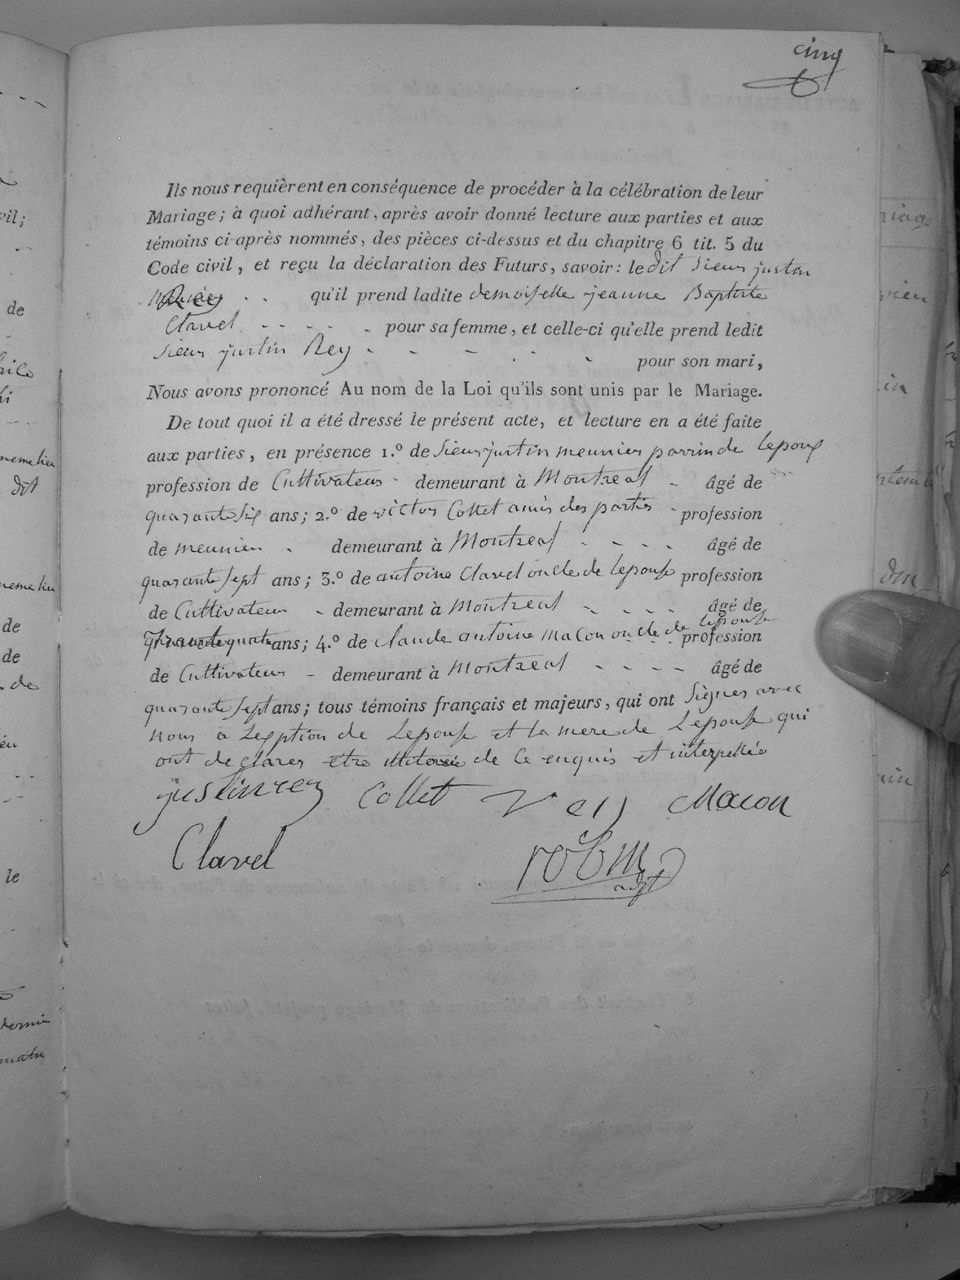 cinq
Ils nous requièrent en conséquence de procéder à la célébration de leur
Mariage; à quoi adhérant, après avoir donné lecture aux parties et aux
témoins ci-après nommés, des pièces ci-dessus et du chapitre 6 tit. 5 du
Code civil, et reçu la déclaration des Futurs, savoir: le dit Sieur justin
Rey qu'il prend ladite demoiselle jeanne Baptiste
Clavel pour sa femme, et celle-ci qu'elle prend ledit
Sieur justin Rey pour son mari,
Nous avons prononcé Au nom de la Loi qu'ils sont unis par le Mariage.
De tout quoi il a été dressé le présent acte, et lecture en a été faite
aux parties, en présence 1.º de Sieur justin meunier de lepoux
profession de Cultivateur demeurant à Montreal âgé de
quarante six ans; 2.º de victor Collet amis des parties profession
de meunier demeurant à Montreal âgé de
quarante sept ans; 3.º de antoine Clavel oncle de lepouse profession
de Cultivateur demeurant à Montreal âgé de
quatre ans; 4.º de claude antoine Macon oncle de lepouse profession
de Cultivateur demeurant à Montreal âgé de
quarante sept ans; tous témoins français et majeurs, qui ont Signes avec
nous a de Lepouse et la mere de Lepouse qui
ont declarer etre de ce enquis et interpellée
justin rey Collet Macon
Clavel
adjt
vil;
de
meme lieu
dit
meme lieu
de
de
de
le